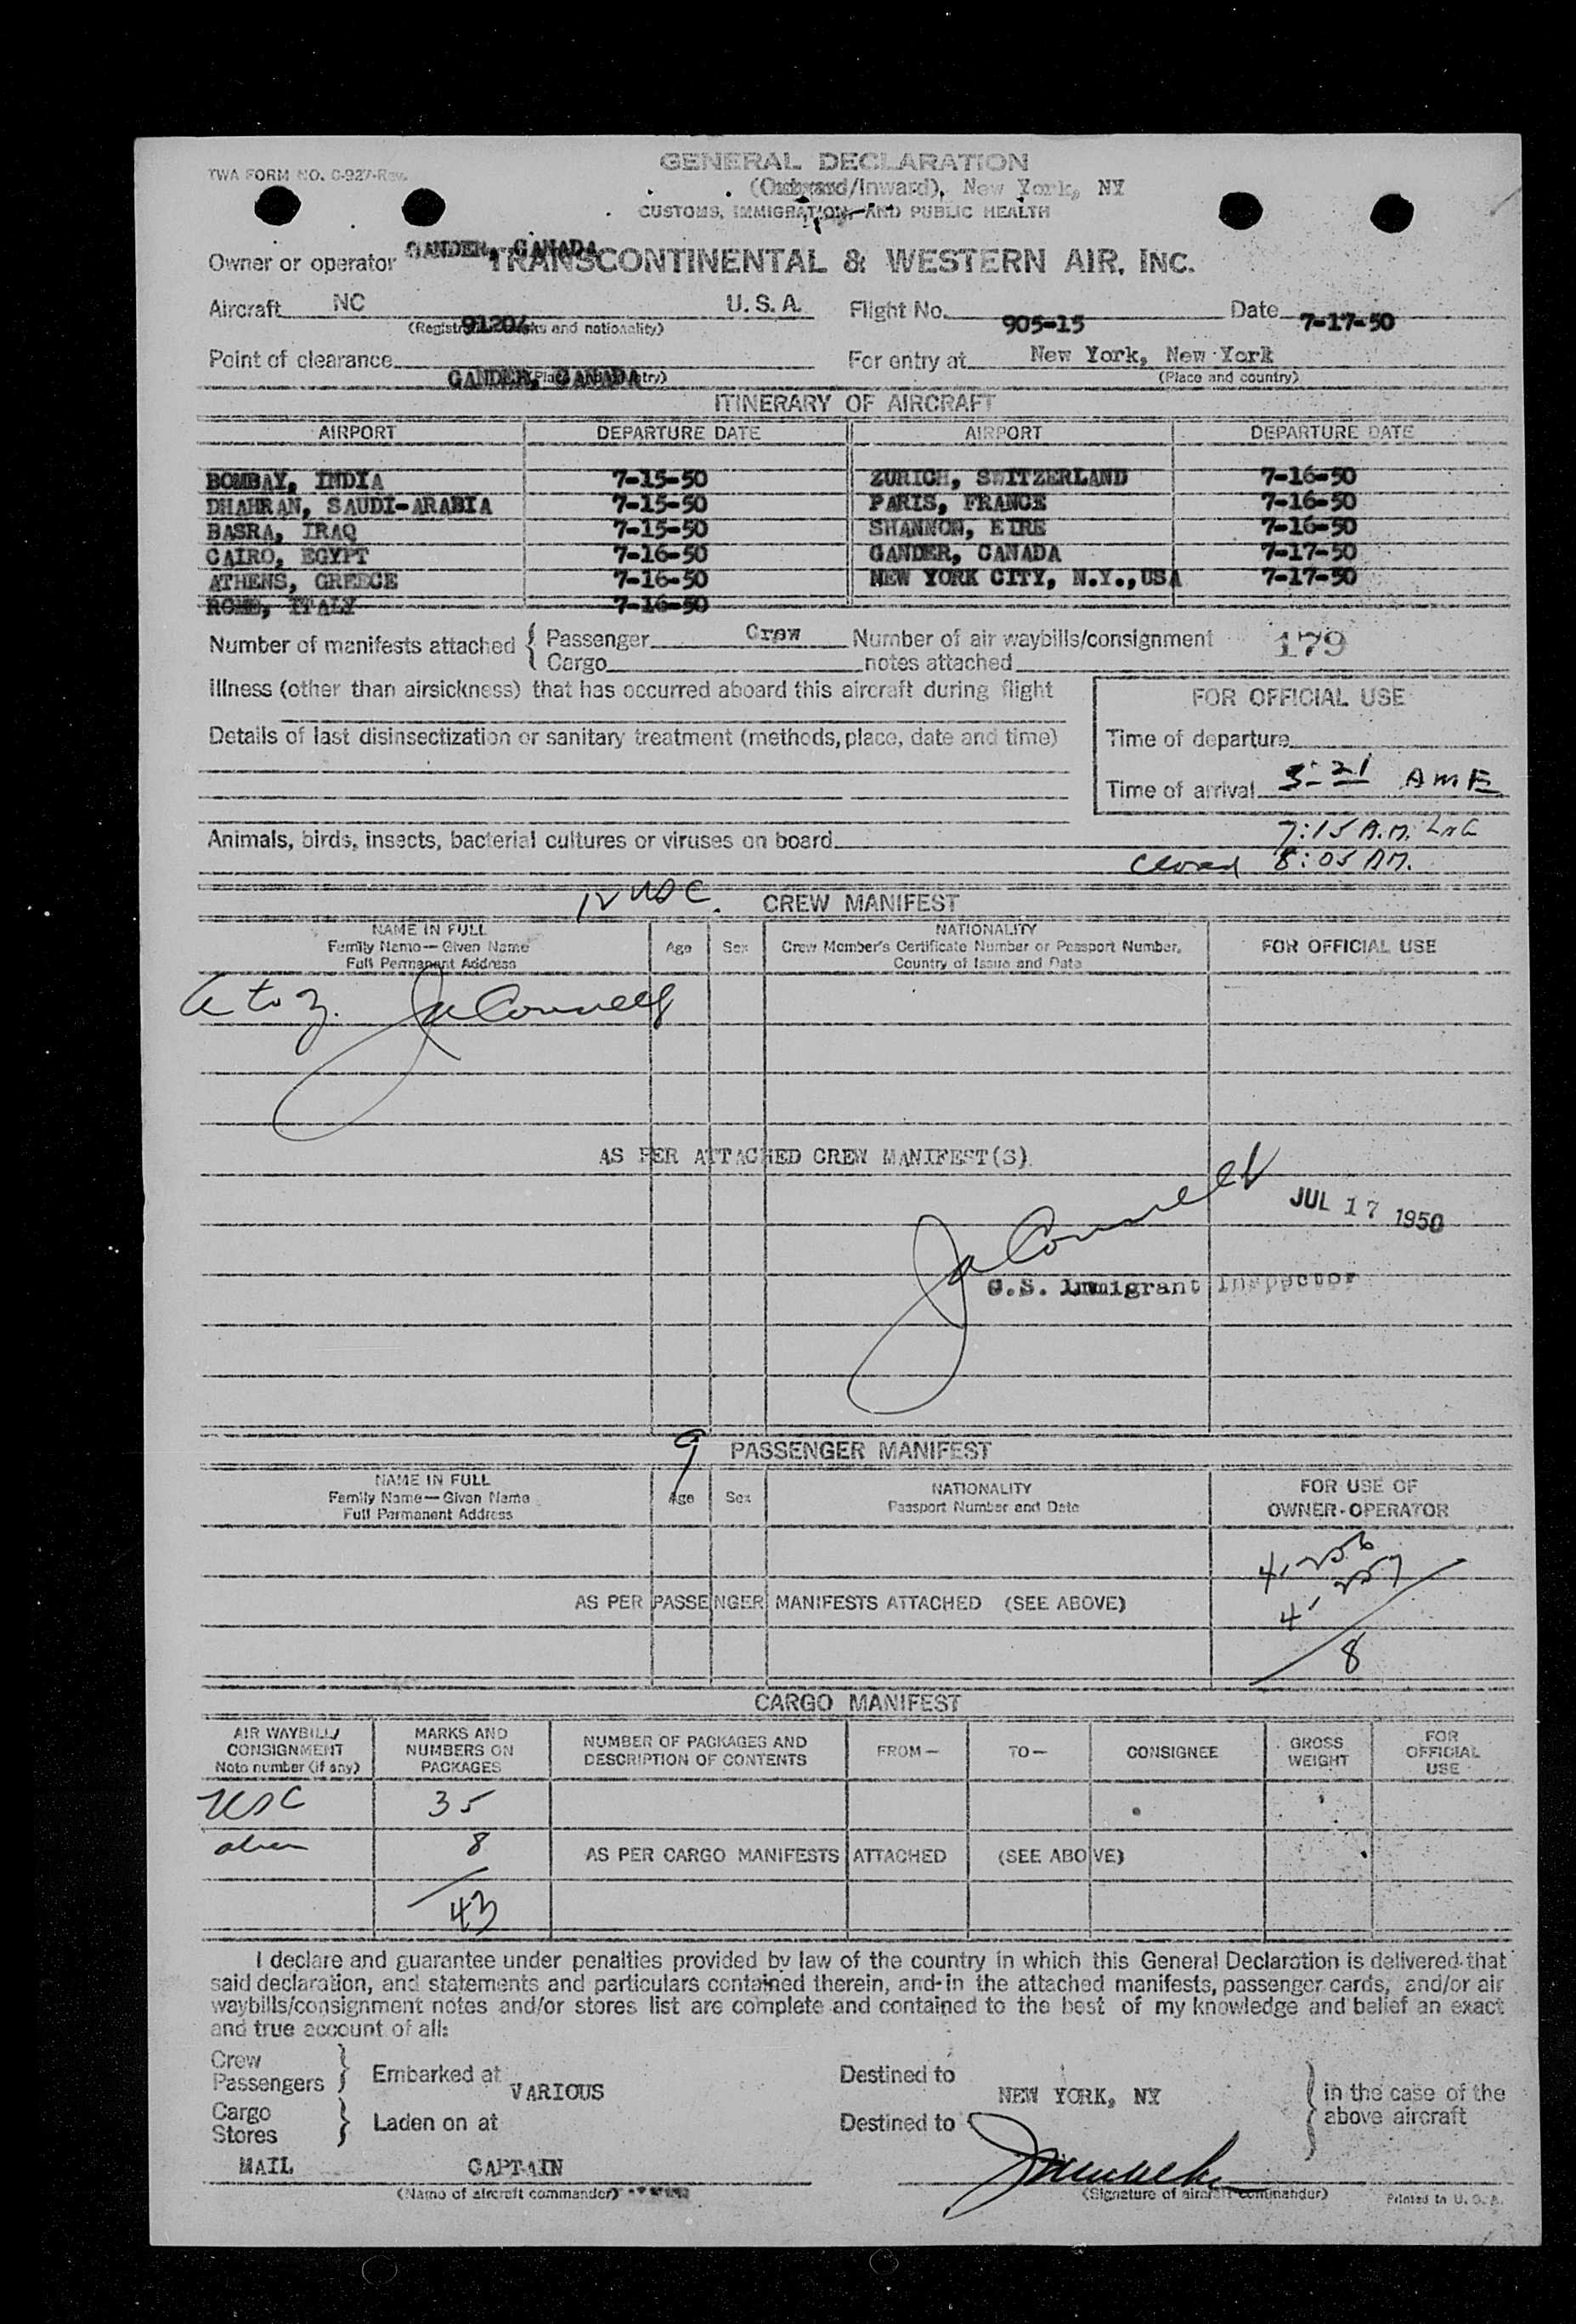 TWA FORM NO. C-927-Rev.
GENERAL DECLARATION
(Outward/Inward), New York, NY
CUSTOMS, IMMIGRATION AND PUBLIC HEALTH
GANDER, CANADA
Owner or operator TRANSCONTINENTAL & WESTERN AIR, INC.
Aircraft NC U. S. A. Flight No. 905-15 Date 7-17-50
(Registration marks and nationality)
Point of clearance GANDER, CANADA For entry at New York, New York
(Place and country) (Place and country)
ITINERARY OF AIRCRAFT
AIRPORT DEPARTURE DATE AIRPORT DEPARTURE DATE
BOMBAY, INDIA 7-15-50 ZURICH, SWITZERLAND 7-16-50
DHAHRAN, SAUDI-ARABIA 7-15-50 PARIS, FRANCE 7-16-50
BASRA, IRAQ 7-15-50 SHANNON, EIRE 7-16-50
CAIRO, EGYPT 7-16-50 GANDER, CANADA 7-17-50
ATHENS, GREECE 7-16-50 NEW YORK CITY, N.Y.,USA 7-17-50
ROME, ITALY 7-16-50
Number of manifests attached { Passenger Crew Number of air waybills/consignment 179
Cargo notes attached
Illness (other than airsickness) that has occurred aboard this aircraft during flight
FOR OFFICIAL USE
Details of last disinsectization or sanitary treatment (methods, place, date and time)
Time of departure
Time of arrival 5-21 AME
7:15 A.M.
Animals, birds, insects, bacterial cultures or viruses on board
closed 8:05 AM.
12 USC. CREW MANIFEST
NAME IN FULL NATIONALITY
Family Name—Given Name Age Sex Crew Member's Certificate Number or Passport Number, FOR OFFICIAL USE
Full Permanent Address Country of Issue and Date
a to z. Ja Connell
AS PER ATTACHED CREW MANIFEST(S)
Ja Connell
JUL 17 1950
U.S. Immigrant Inspector
9 PASSENGER MANIFEST
NAME IN FULL NATIONALITY FOR USE OF
Family Name—Given Name Age Sex Passport Number and Date OWNER-OPERATOR
Full Permanent Address
4-256
257
AS PER PASSENGER MANIFESTS ATTACHED (SEE ABOVE)
4-
8
CARGO MANIFEST
AIR WAYBILL/ MARKS AND NUMBER OF PACKAGES AND FROM— TO— CONSIGNEE GROSS FOR
CONSIGNMENT NUMBERS ON DESCRIPTION OF CONTENTS WEIGHT OFFICIAL
Note number (if any) PACKAGES USE
USC 35
alien 8 AS PER CARGO MANIFESTS ATTACHED (SEE ABOVE)
43
I declare and guarantee under penalties provided by law of the country in which this General Declaration is delivered that
said declaration, and statements and particulars contained therein, and in the attached manifests, passenger cards, and/or air
waybills/consignment notes and/or stores list are complete and contained to the best of my knowledge and belief an exact
and true account of all:
Crew
Passengers } Embarked at VARIOUS Destined to NEW YORK, NY } in the case of the
above aircraft
Cargo
Stores } Laden on at Destined to
MAIL CAPTAIN
(Name of aircraft commander) (Signature of aircraft commander) Printed in U. S. A.